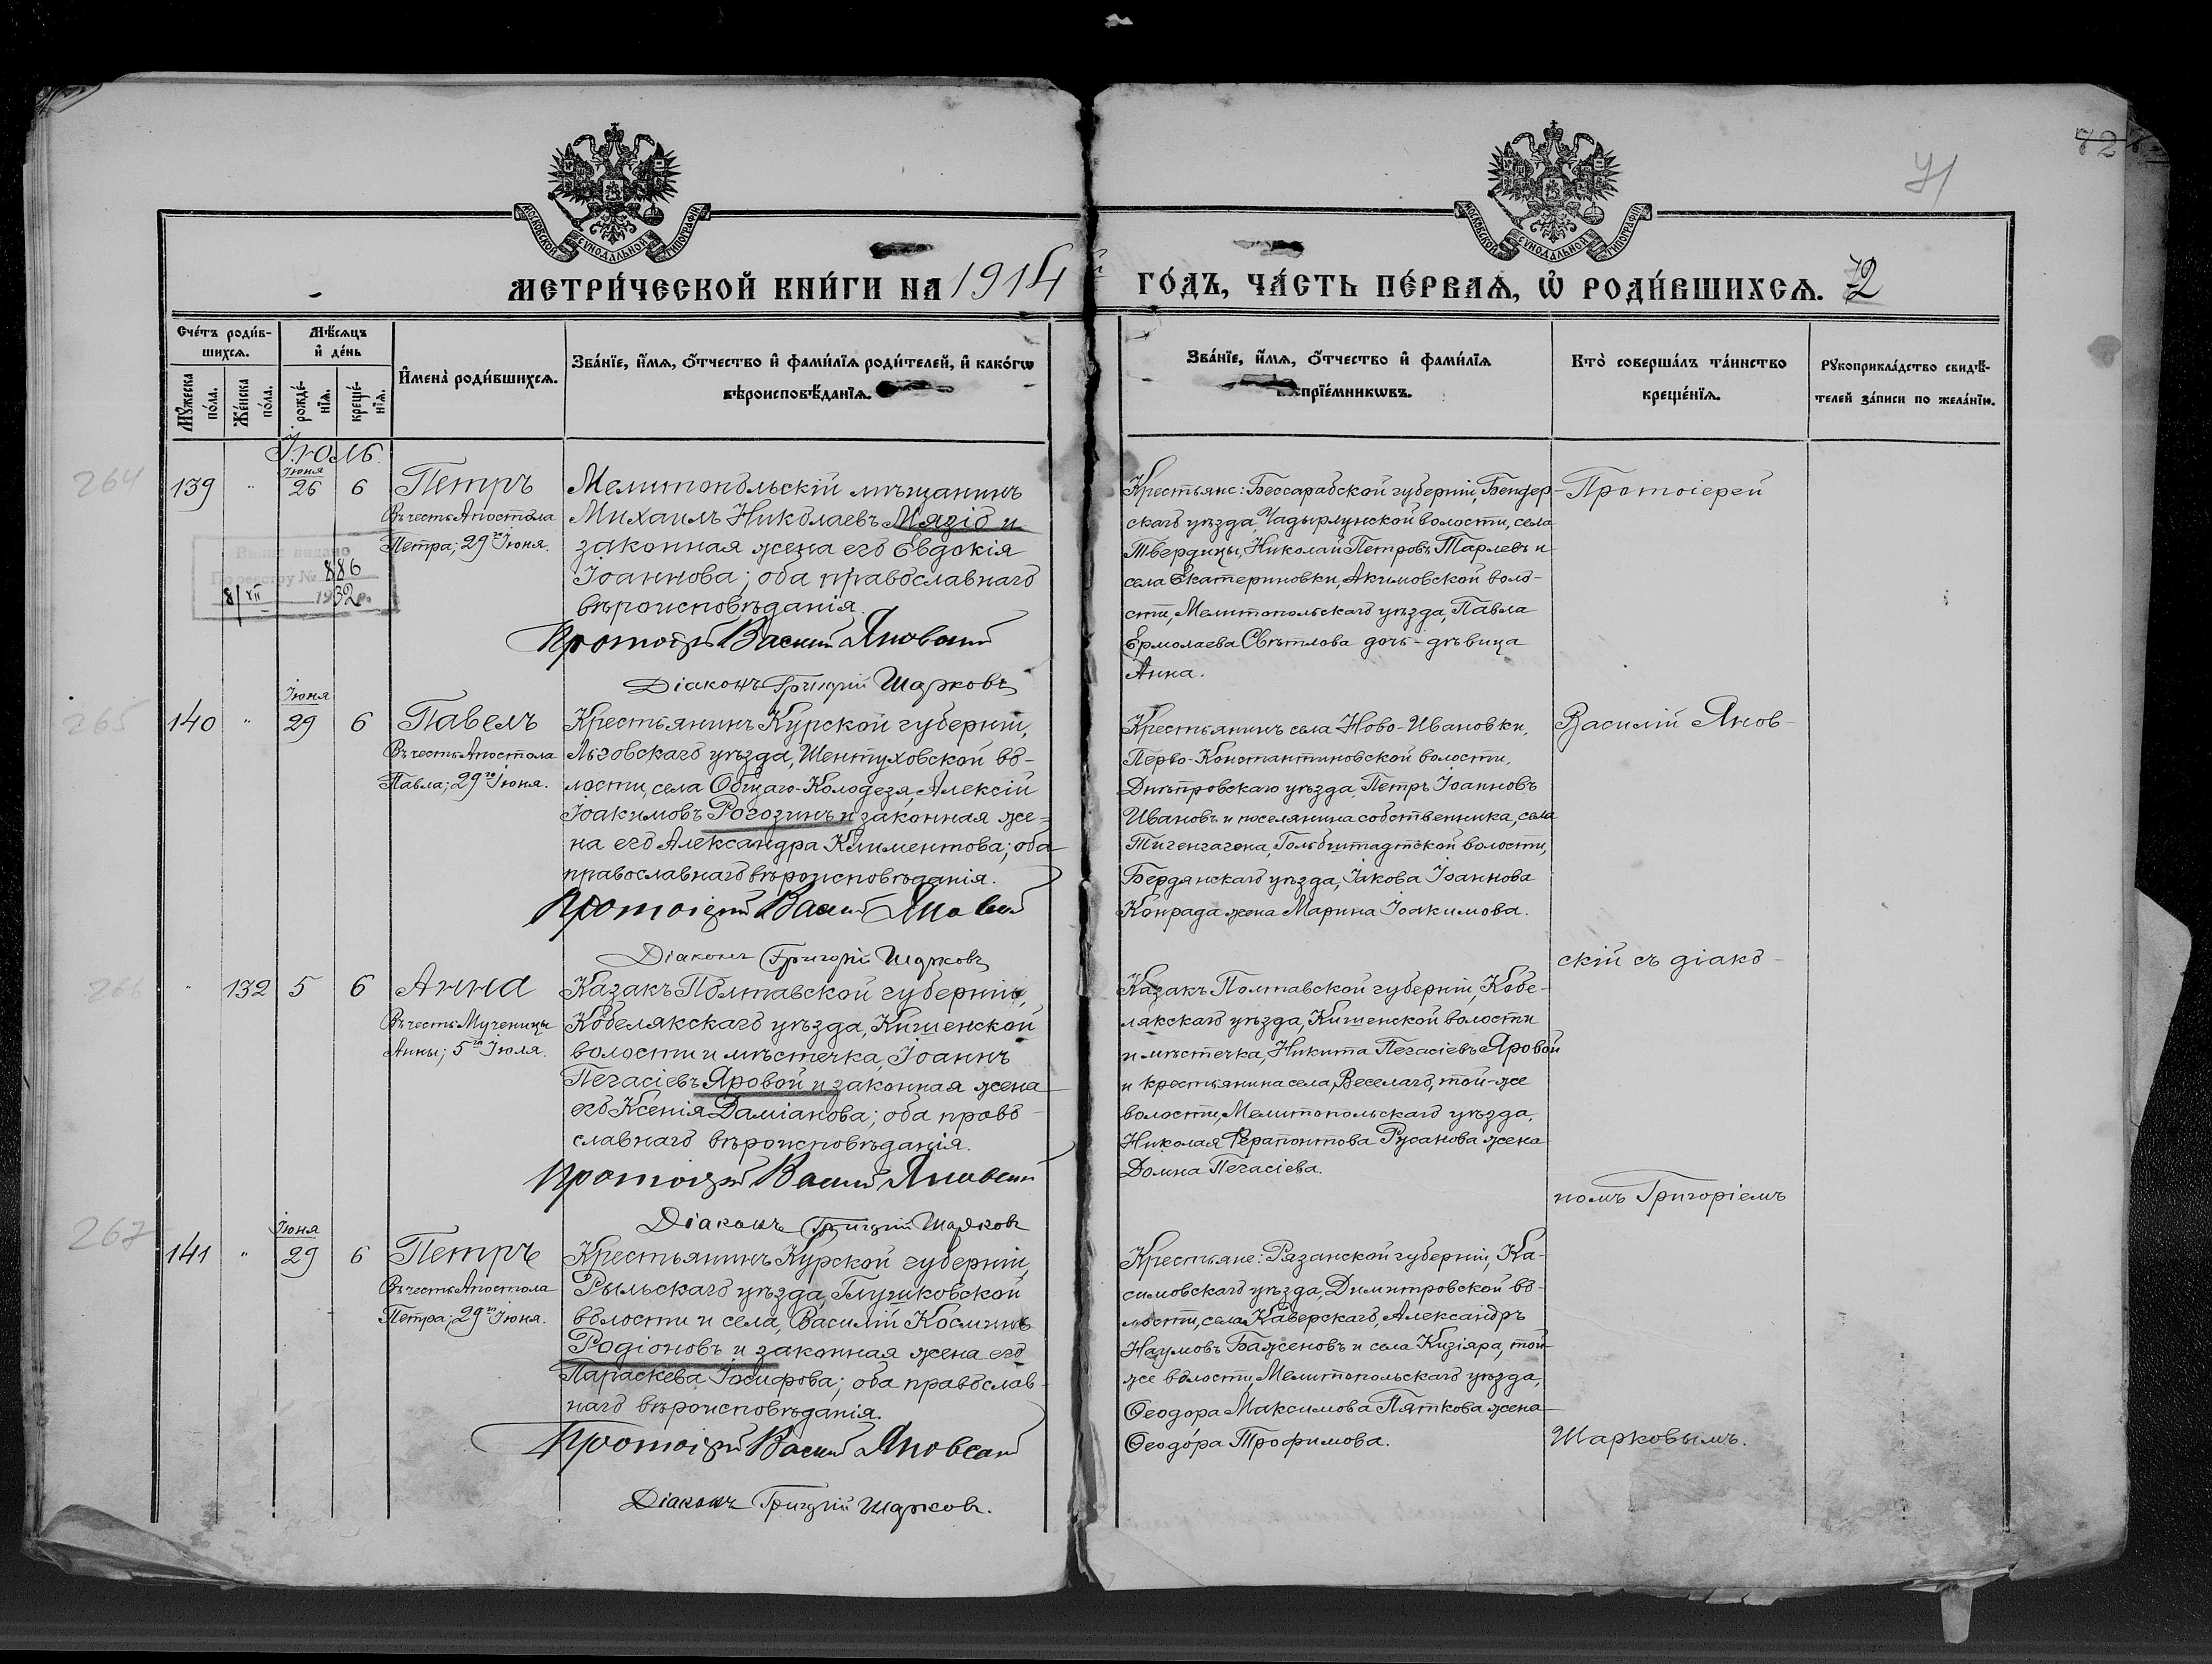 72
71
МОСКОВСКОЙ СѴНОДАЛЬНОЙ ТИПОГРАФІИ
МОСКОВСКОЙ СѴНОДАЛЬНОЙ ТИПОГРАФІИ
МЕТРИ́ЧЕСКОЙ КНИ́ГИ НА 1914 й ГО́ДЪ, ЧА́СТЬ ПЕ́РВАѦ, Ѡ҆ РОДИ́ВШИХСѦ. 72
Сче́тъ роди́в-
шихсѧ.
Мѣ́сѧцъ
и҆ де́нь
Мꙋ́жеска
по́ла.
Же́нска
по́ла.
рожде́-
нїѧ.
креще́-
нїѧ.
И҆мена̀ роди́вшихсѧ.
Зва́нїе, и҆́мѧ, ѻ҆́тчество и҆ фами́лїѧ роди́телей, и҆ како́гѡ
вѣроисповѣ́данїѧ.
Зва́нїе, и҆́мѧ, ѻ҆́тчество и҆ фами́лїѧ
прїе́мникѡвъ.
Кто̀ соверша́лъ та́инство
креще́нїѧ.
Рꙋкоприкла́дство свидѣ́-
телей за́писи по жела́нїю.
Іюль
264
139
"
Іюня
26
6
Петръ
Въ честь Апостола
Петра; 29го Іюня.
Видано
По реєстру № 886
8/VII 1932 р.
Мелитопольскій мѣщанинъ
Михаилъ Николаевъ Мязіо и
законная жена его Евдокія
Іоаннова; оба православнаго
вѣроисповѣданія.
Протоіерей Василій Яновскій
Діаконъ Григорій Шарковъ
Крестьяне: Бессарабской губерніи, Бендер-
скаго уѣзда, Чадырлунской волости, села
Твердицы, Николай Петровъ Тарлевъ и
села Екатериновки, Акимовской воло-
сти, Мелитопольскаго уѣзда, Павла
Ермолаева Свѣтлова дочь-дѣвица
Анна.
Протоіерей
265
140
"
Іюня
29
6
Павелъ
Въ честь Апостола
Павла; 29го Іюня.
Крестьянинъ Курской губерніи,
Льговскаго уѣзда, Шептуховской во-
лости, села Общаго-Колодезя, Алексій
Іоакимовъ Рогозинъ и законная же-
на его Александра Климентова; оба
православнаго вѣроисповѣданія.
Протоіерей Василій Яновскій
Діаконъ Григорій Шарковъ
Крестьянинъ села Ново-Ивановки,
Перво-Константиновской волости,
Днѣпровскаго уѣзда, Петръ Іоанновъ
Ивановъ и поселянина собственника, села
Тигенгагена, Гольбштадтской волости,
Бердянскаго уѣзда, Іакова Іоаннова
Конрада жена Марина Іоакимова.
Василій Янов-
266
"
132
5
6
Анна
Въ честь Мученицы
Анны; 5го Іюля.
Казакъ Полтавской губерніи,
Кобелякскаго уѣзда, Кишенской
волости и мѣстечка, Іоаннъ
Пегасіевъ Яровой и законная жена
его Ксенія Даміанова; оба право-
славнаго вѣроисповѣданія.
Протоіерей Василій Яновскій
Діаконъ Григорій Шарковъ
Казакъ Полтавской губерніи, Кобе-
лякскаго уѣзда, Кишенской волости
и мѣстечка, Никита Пегасіевъ Яровой
и крестьянина села, Веселаго, той-же
волости, Мелитопольскаго уѣзда,
Николая Ферапонтова Русанова жена
Домна Пегасіева.
скій съ діако-
267
141
"
Іюня
29
6
Петръ
Въ честь Апостола
Петра; 29го Іюня.
Крестьянинъ Курской губерніи,
Рыльскаго уѣзда, Глушковской
волости и села, Василій Косминъ
Родіоновъ и законная жена его
Параскева Іосифова; оба православ-
наго вѣроисповѣданія.
Протоіерей Василій Яновскій
Діаконъ Григорій Шарковъ.
Крестьяне: Рязанской губерніи, Ка-
симовскаго уѣзда, Димитровской во-
лости, села Каверскаго, Александръ
Наумовъ Баженовъ и села Кизіяра, той-
же волости, Мелитопольскаго уѣзда,
Ѳеодора Максимова Пяткова жена
Ѳеодо́ра Трофимова.
номъ Григоріемъ
Шарковымъ.